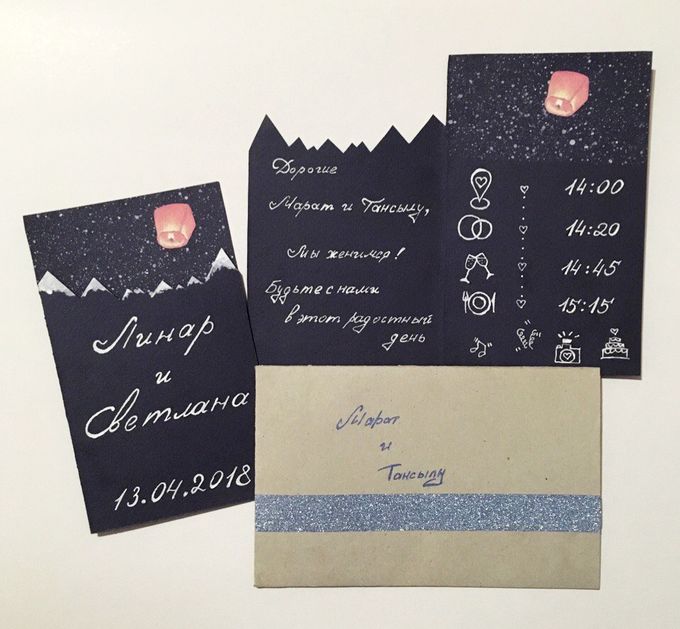 Линар
и
Светлана
13.04.2018
Дорогие
Марат и Тансылу,
Мы женимся!
Будьте с нами
в этот радостный
день
14:00
14:20
14:45
15:15
Марат
и
Тансылу